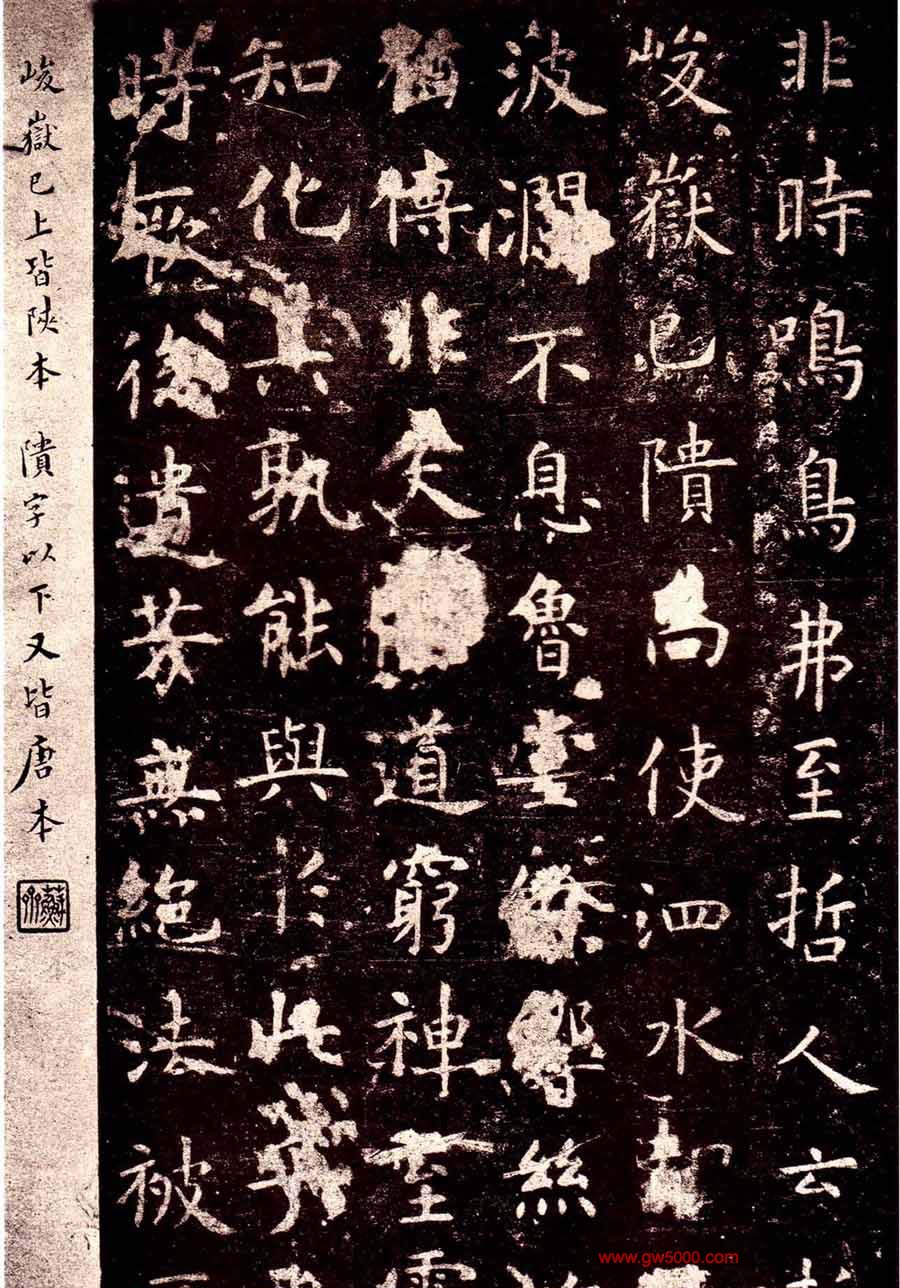 非時鳴鳥弗至哲人云
峻嶽已隤尚使泗水却
波瀾不息魯堂餘響絲
猶傳非夫道窮神至
知化其孰能與於此
時歷後遺芳無絕法被
峻嶽已上皆陝本 隤字以下又皆唐本
www.gw5000.com